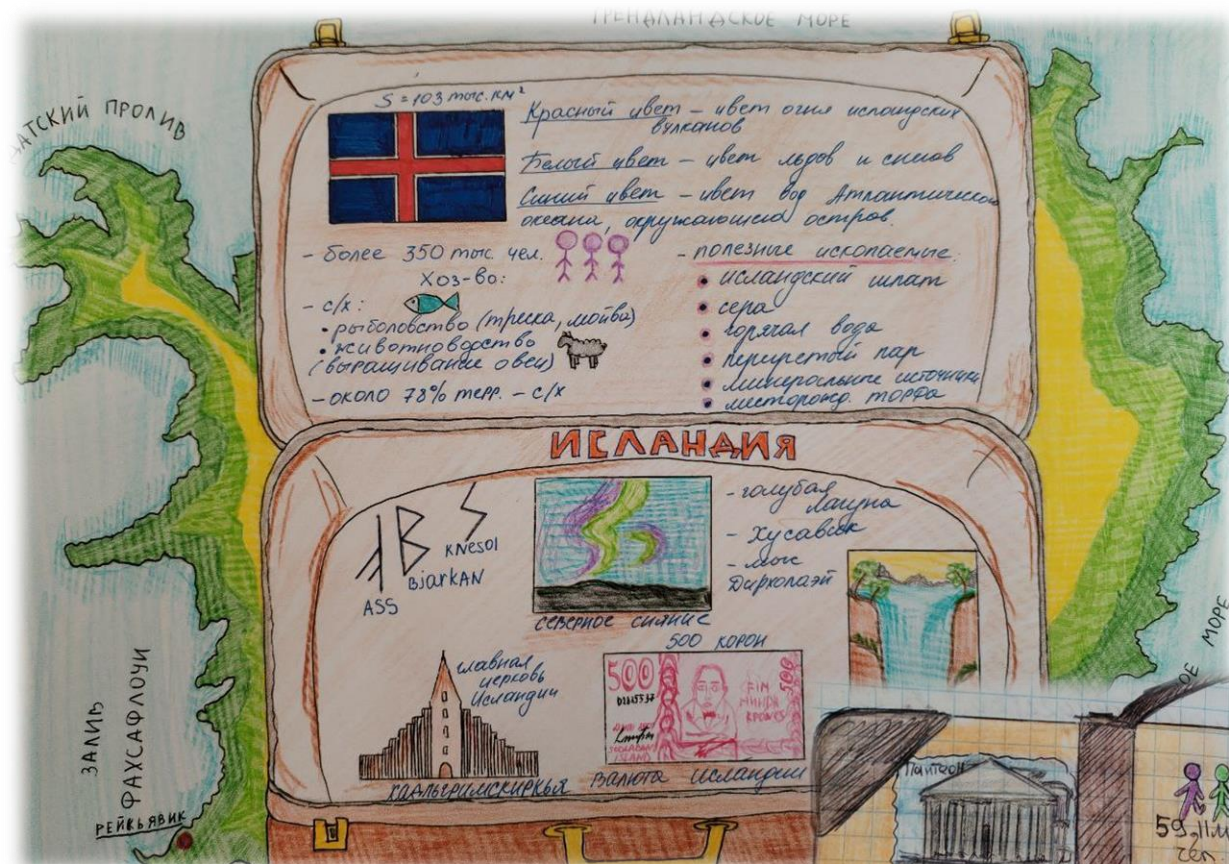 ГРЕНДЛАНДСКОЕ МОРЕ
АТСКИЙ ПРОЛИВ
S = 103 тыс. км²
Красный цвет – цвет огня исландских
вулканов
Белый цвет – цвет льдов и снегов
Синий цвет – цвет вод Атлантического
океана, окружающего остров.
- более 350 тыс. чел.
Хоз-во:
- с/х:
• рыболовство (треска, мойва)
• животноводство
(выращивание овец)
- около 78% терр. – с/х
- полезные ископаемые:
• исландский шпат
• сера
• горячая вода
• перегретый пар
• минеральные источники
• месторожд. торфа
ИСЛАНДИЯ
ASS
BjarkAN
KNESOl
северное сияние
- голубая
лагуна
- Хусавик
- мыс
Дирхолаэй
главная
церковь
Исландии
Хадльгримскиркья
500 КОРОН
500
500
валюта Исландии
ЗАЛИВ
ФАХСАФЛОУИ
РЕЙКЬЯВИК
ОЕ МОРЕ
Пантеон
59,11м
чел